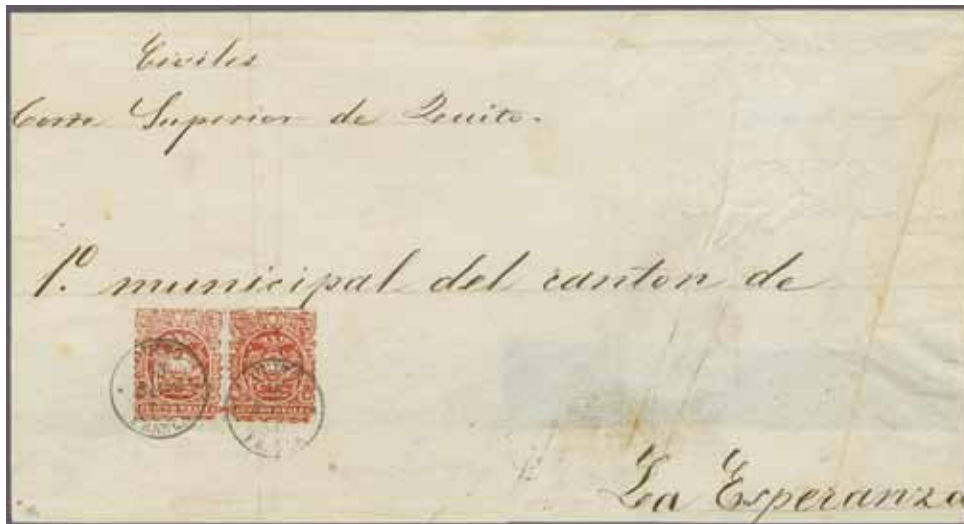 Civiles
Corte Superior de Quito.
1º. municipal del canton de
FRANCA
La Esperanza